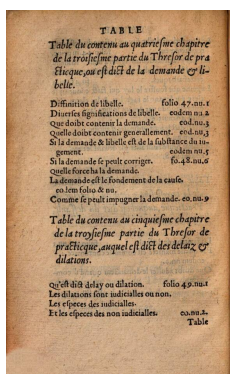 TABLE
Table du contenu au quatrieſme chapitre
de la troiſieſme partie du Threſor de pra
ćticque, ou eſt dićt de la demande & li-
belle.
Diffinition de libelle. folio 47.nu.1
Diuerſes ſignifications de libelle. eodem nu.2
Que doibt contenir la demande. eod.nu.3
Quelle doibt contenir generallement. eod.nu.3
Si la demande & libelle eſt de la ſubſtance du iu-
gement. eodem nu.5
Si la demande ſe peult corriger. fo.48.nu.6
Quelle force ha la demande.
La demande eſt le fondement de la cauſe.
eodem folio & nu.
Comme ſe peult impugner la demande. eo.nu.9
Table du contenu au cinquieſme chapitre
de la troyſieſme partie du Threſor de
praćticque, auquel eſt dićt des delaiz &
dilations.
Qu'eſt dićt delay ou dilation. folio 49.nu.1
Les dilations ſont iudicialles ou non.
Les eſpeces des iudicialles.
Et les eſpeces des non iudicialles. eo.nu.2.
Table